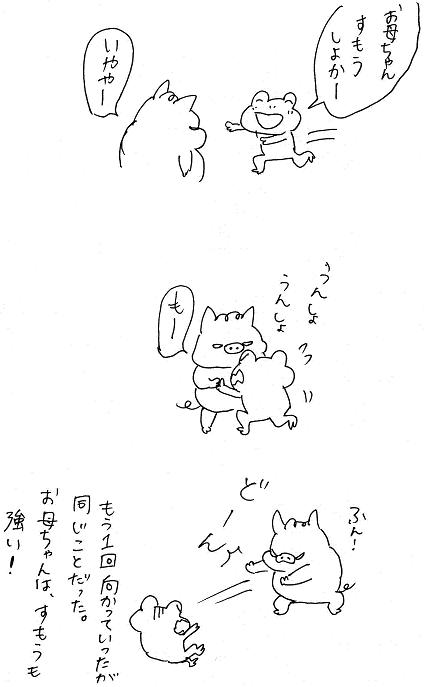 お母ちゃん
すもう
しよかー
いややー
うんしょ
うんしょ
もー
ふん!
どーんッ
もう1回向かっていったが
同じことだった。
お母ちゃんは、すもうも
強い!